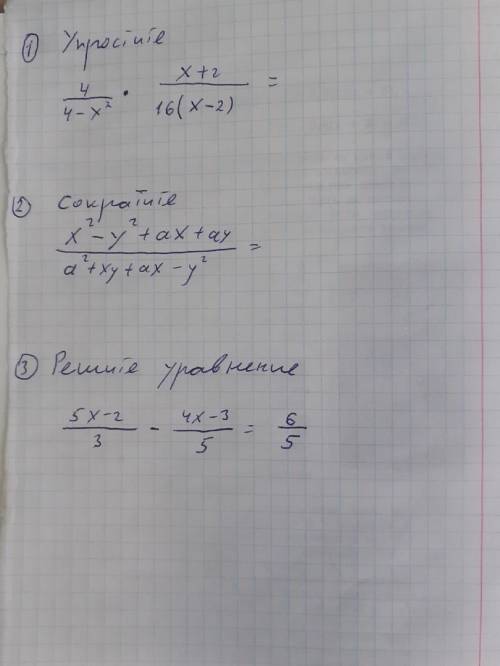 ① Упростите
4/(4-x²) · (x+2)/(16(x-2)) =
② Сократите
(x²-y²+ax+ay)/(a²+xy+ax-y²) =
③ Решите уравнение
(5x-2)/3 - (4x-3)/5 = 6/5